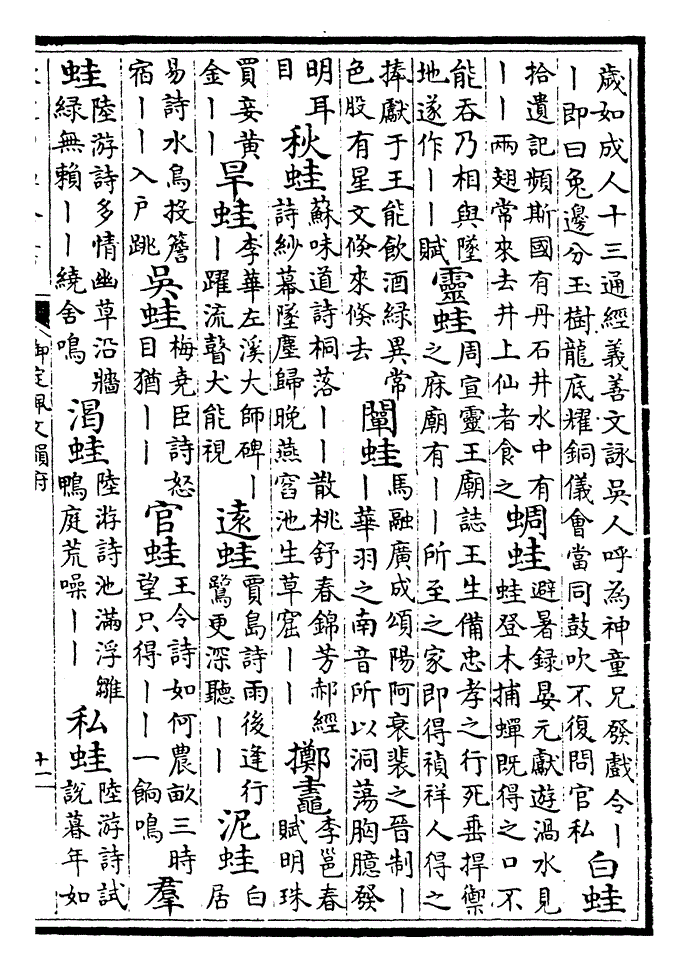 歲如成人十三通經義善文詠吳人呼為神童兄發戲令丨
丨即曰兔邊分玉樹龍底耀銅儀會當同鼓吹不復問官私
白蛙
拾遺記頻斯國有丹石井水中有
丨丨兩翅常來去井上仙者食之
蜩蛙
避暑録晏元獻遊渦水見
蛙登木捕蟬既得之口不
能吞乃相與墜
地遂作丨丨賦
靈蛙
周宣靈王廟誌王生備忠孝之行死垂捍禦
之庥廟有丨丨所至之家即得禎祥人得之
捧獻于王能飲酒緑異常
色股有星文倐來倐去
闡蛙
馬融廣成頌陽阿衰裴之晉制丨
丨華羽之南音所以洞蕩胸臆發
明耳
目
秋蛙
蘇味道詩桐落丨丨散桃舒春錦芳郝經
詩紗幕墜塵歸晚燕窞池生草窟丨丨
擲鼃
李邕春
賦明珠
買妾黄
金丨丨
旱蛙
李華左溪大師碑丨
丨躍流瞽犬能視
遠蛙
賈島詩雨後逢行
鷺更深聽丨丨
泥蛙
白
居
易詩水鳥投簷
宿丨丨入户跳
吳蛙
梅堯臣詩怒
目猶丨丨
官蛙
王令詩如何農畝三時
望只得丨丨一餉鳴
羣
蛙
陸游詩多情幽草沿牆
緑無賴丨丨繞舍鳴
渴蛙
陸游詩池滿浮雛
鴨庭荒噪丨丨
私蛙
陸游詩試
說暮年如
御定佩文韻府
十一